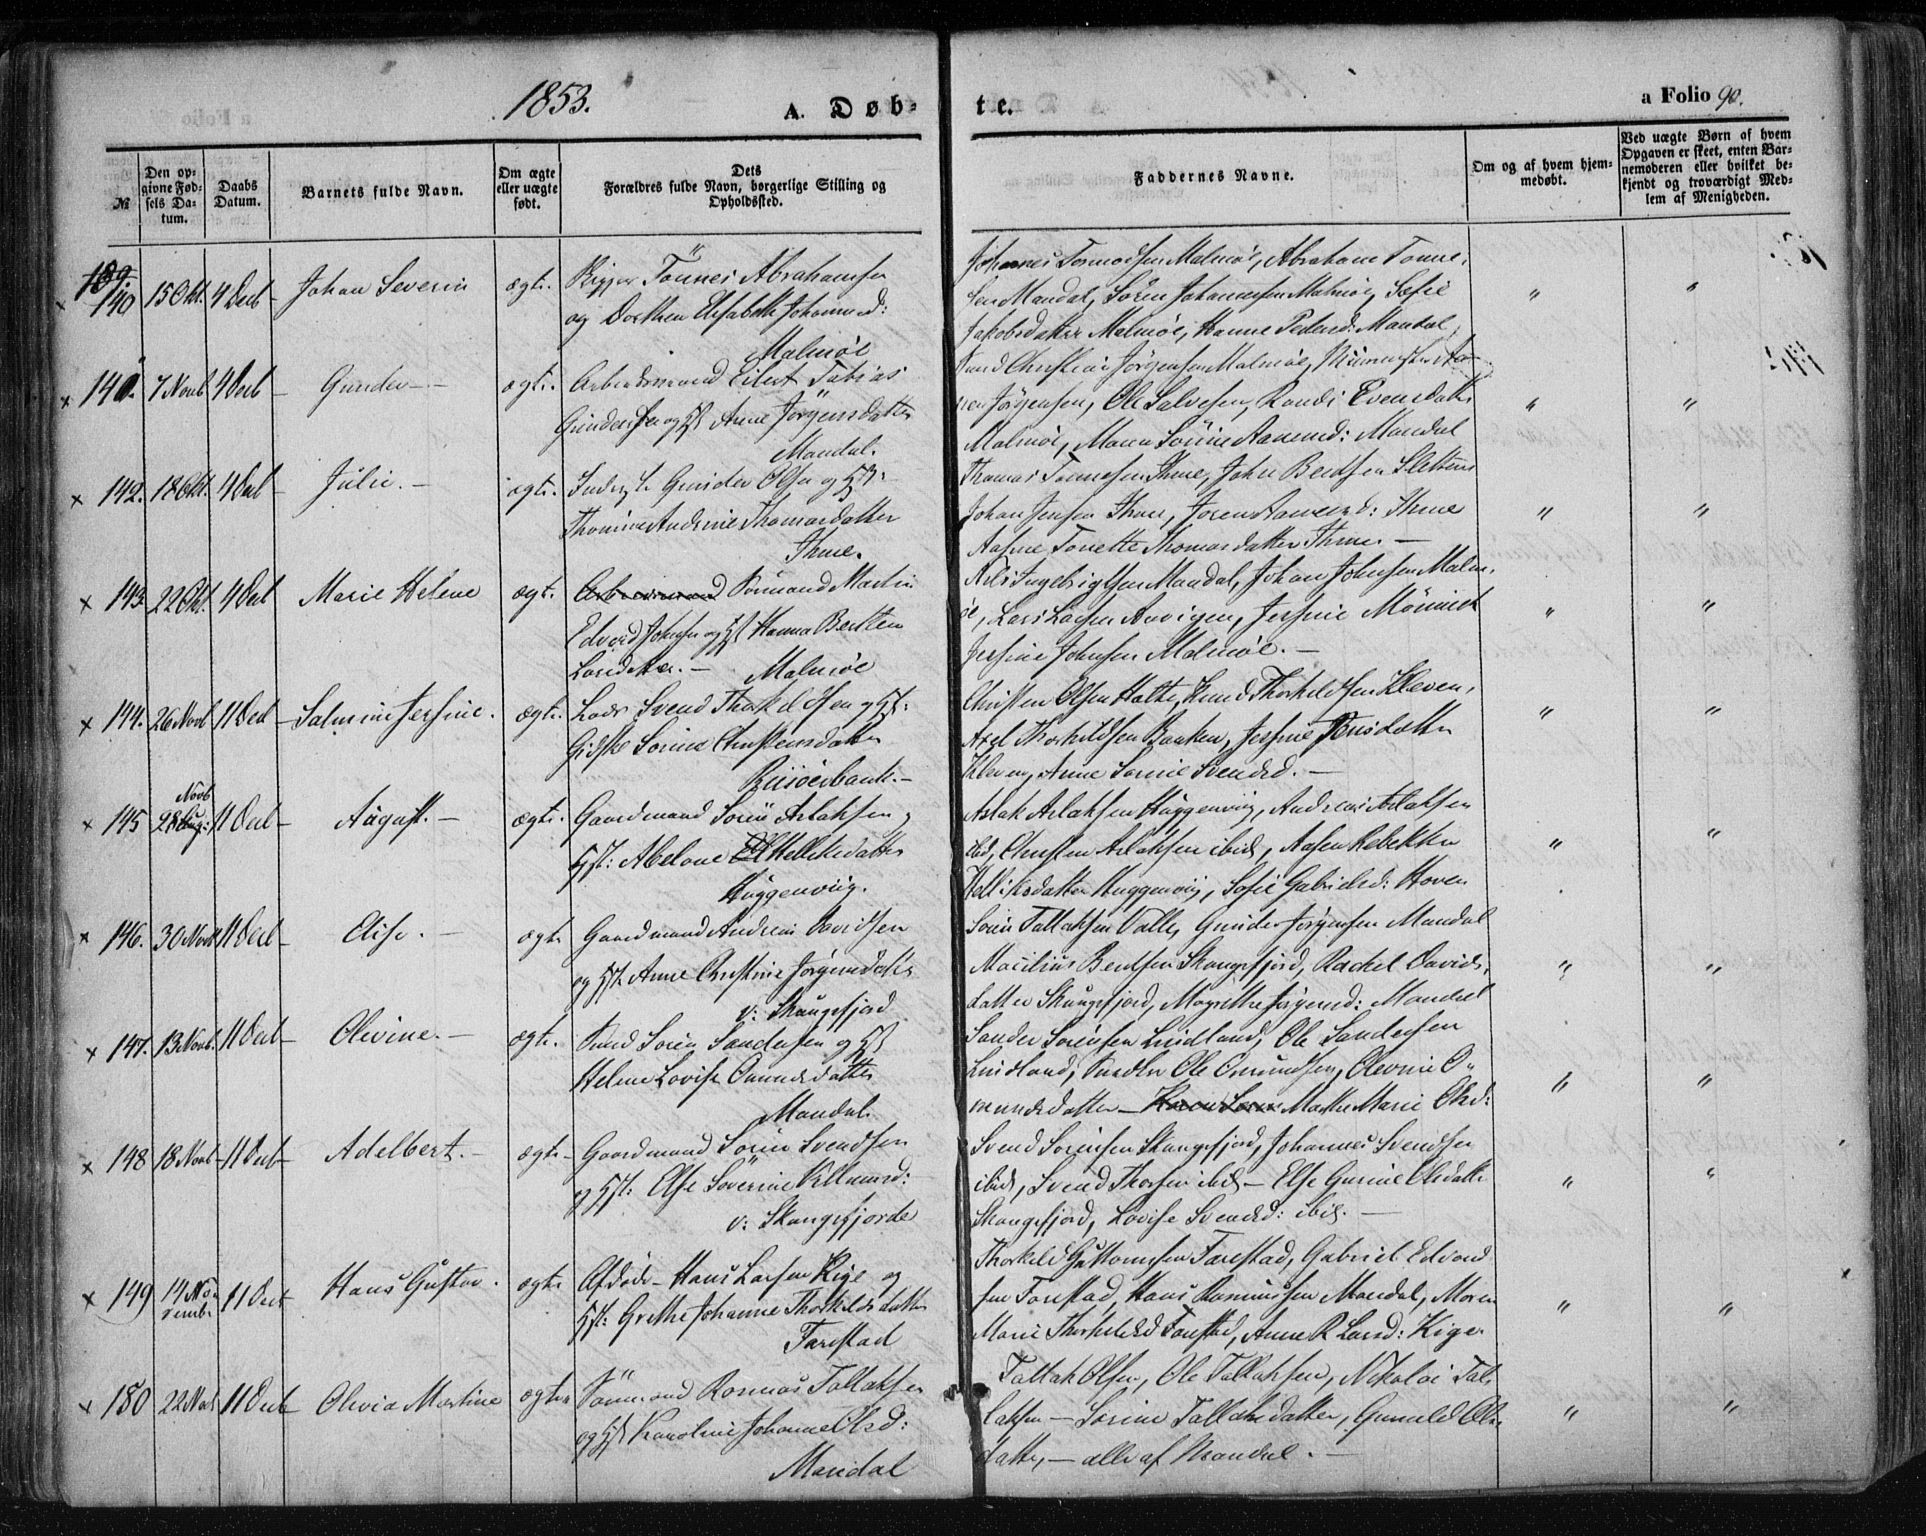 1853.
A. Døb-
te.
a Folio 90.
№
Den op-
givne Fød-
sels Da-
tum.
Daabs
Datum.
Barnets fulde Navn.
Om ægte
eller uægte
født.
Dets
Forældres fulde Navn, borgerlige Stilling og
Opholdssted.
Faddernes Navne.
Om og af hvem hjem-
medøbt.
Ved uægte Børn af hvem
Opgaven er skeet, enten Bar-
nemoderen eller hvilket be-
kjendt og troværdigt Med-
lem af Menigheden.
140 15 Okt. 4 Decb Johan Severin ægte. Tönnes Abrahamsen
og Dorthea Elisabeth Johannesd:
Malmøe
Johannes Tormodsen Malmöe, Abraham Tønne-
sen Mandal, Sören Johannesen Malmöe, Sofie
Jakobsdatter Malmöe, Hanne Pedersd: Mandal
" "
141. 7 Novb 4 Decb Gunder ægte. Arbeidsmand Eilert Tobias
Gundersen og Hst Anne Jörgensdatter
Mandal.
Christian Jörgensen Malmöe,
Jörgensen, Ole Salvesen, Randi Evensdatter
Malmöe, Maren Sörine Mandal
" "
142. 18 Okt. 4 Decb Julie. ægte. Gunder Olsen og Hst:
Thomine Andrine Thomasdatter
Ihme.
Thomas Tønnesen Ihme, John Berntsen Sletten
Johan Jensen Ihme, Ihme
Tonette Thomasdatter Ihme. —
" "
143. 22 Okt. 4 Decb Marie Helene ægt. Arbeidsmand Sömand Martin
Edvard Johnsen og Hst Hanna Berthea
Larsdatter. — Malmöe
Nils Ingebrigtsen Mandal, Johan Johnsen Malm-
öe, Lars Larsen Aavigen, Jersine Mönnich
Jersine Johnsen Malmöe. —
" "
144. 26 Novb 11 Decb Salmine Jersine. ægte. Lods Svend Thorkeldsen og Hst:
Gidske Sorine Christensdatter
Risöerbank. —
Christen Olsen Hatte, Knud Thorkeldsen Kleven,
Axel Thorkildsen Banken, Jersine datter
Kleven, Anne Sorine Svendsd. —
" "
145 Novb
28 Aug: 11 Decb August. — ægte. Gaardmand Sören Aslaksen og
Hst: Abelone Hellikedatter
Huggenviig.
Aslak Aslaksen Huggenviig, Andreas Aslaksen
ibid, Christen Aslaksen ibid, Aasen Rebekka
Helliksdatter Huggenviig, Sofie Gabrielsd: Hoven
" "
146. 30 Novb 11 Decb Elise. — ægte Gaardmand Andreas Davidsen
og Hst. Anne Christine Jörgensdatter
v: Skougsfjord
Sören Tallaksen Valle, Gunder Jörgensen Mandal
Berntsen Skougsfjord, Rachel Davids-
datter Skougsfjord, Magrethe Jörgensd: Mandal
" "
147. 13 Novb. 11 Decb Olevine. — ægte. Sören Sandersen og Hst
Helene Lovise Omundsdatter
Mandal.
Sander Sörensen Lindland, Ole Sandersen
Lindland, Ole Omundsen, Olevine O-
mundsdatter — Marthe Marie Olsd:
" "
148 18 Novb 11 Decb Adelbert. — ægte Gaardmand Sören Svendsen
og Hst: Else Söverine
v: Skougsfjorde
Svend Sörensen Skougsfjord, Johannes Svendsen
ibid, Svend Thorsen ibid — Else Gurine Olsdatter
Skougsfjord, Lovise Svendsd: ibid. —
" "
149 14 No-
vembr 11 Decb Hans Gustav. ægte Afdöde Hans Larsen Kige og
Hst: Grethe Johanne Thorkeldsdatter
Farestad
Thorkeld Guttormsen Farestad, Gabriel Edvard-
sen Farestad, Hans Rasmussen Mandal, Maren
Marie Thorkeldsd Farestad, Anne R Larsd: Kige
" "
150 22 Novb 11 Decb Olivia Martine ægte Sömand Rasmus Tallaksen
og Hst Karoline Johanne Olsd:
Mandal
Tallak Olsen, Ole Tallaksen, Nikolai Tal-
laksen — Sorine Tallaksdatter, Gunild Ols-
datter, — alle af Mandal. —
" "